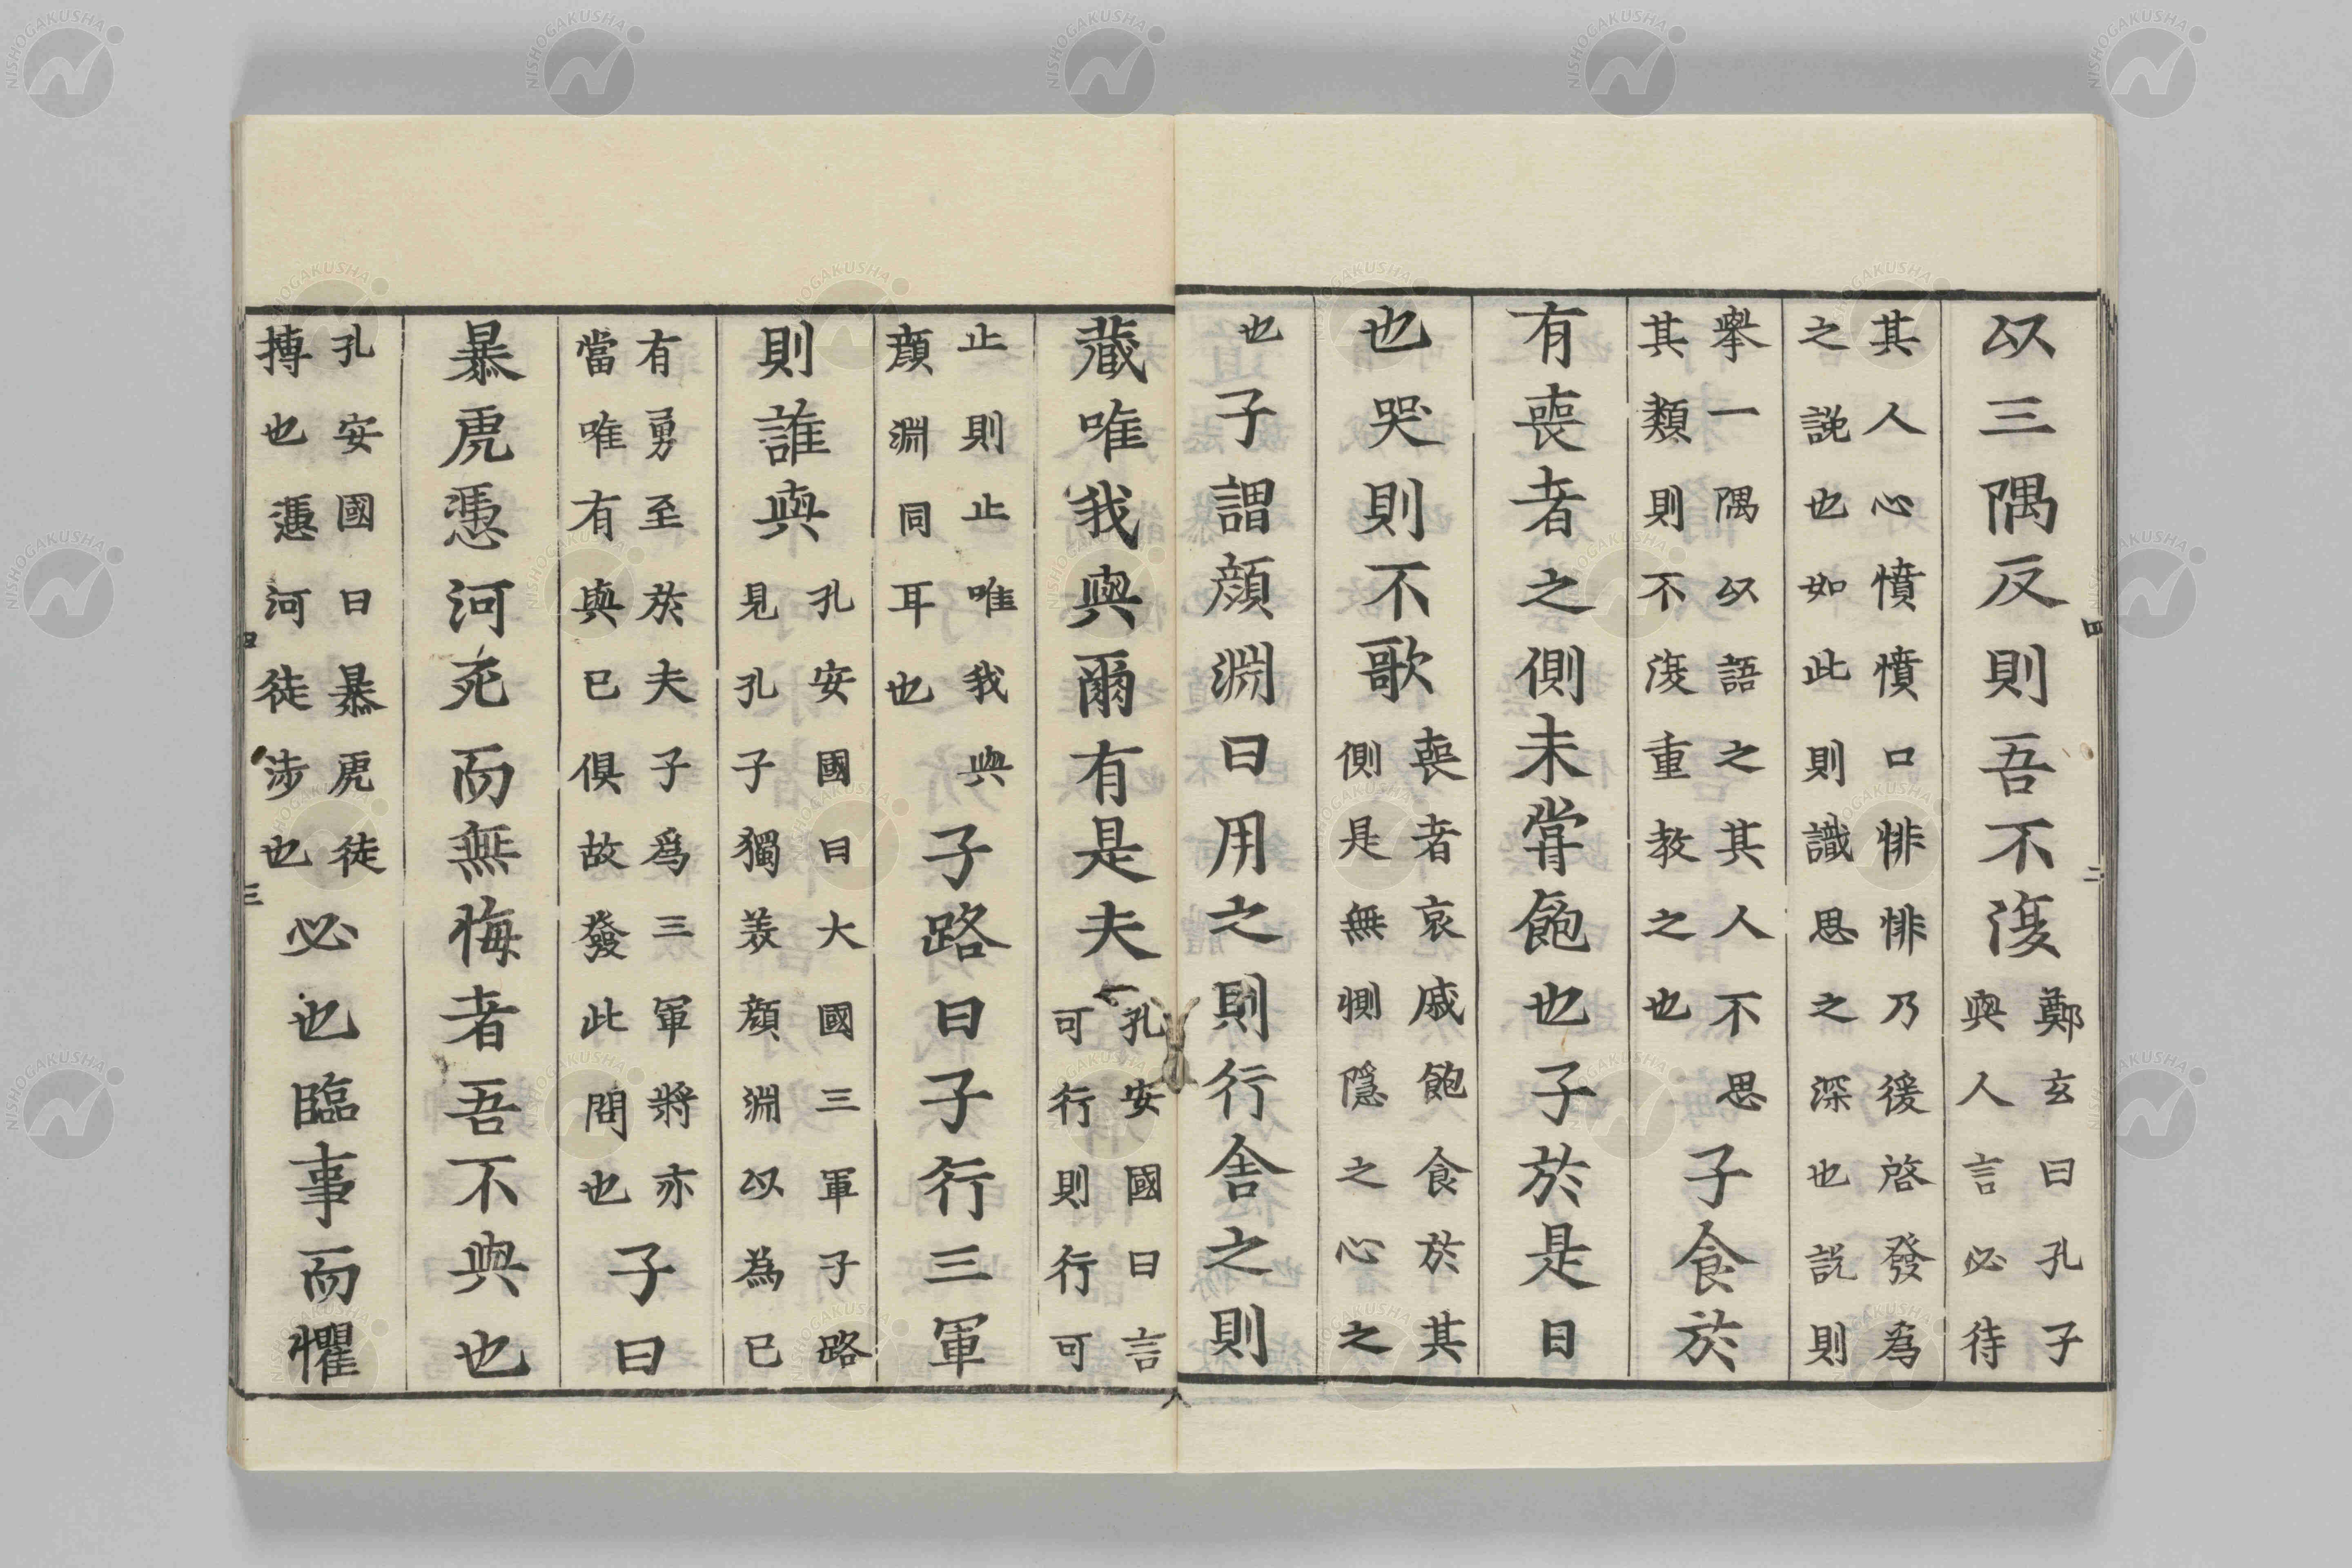 以三隅反則吾不復鄭玄曰孔子與人言必待
其人心憤憤口悱悱乃後啓發爲之說也如此則識思之深也說則
擧一隅以語之其人不思其類則不復重教之也子食於
有喪者之側未甞飽也子於是日
也哭則不歌喪者哀戚飽食於其側是無惻隱之心之
也子謂顔淵曰用之則行舍之則
藏唯我與爾有是夫孔安國曰言可行則行可
止則止唯我與顔淵同耳也子路曰子行三軍
則誰與孔安國曰大國三軍子路見孔子獨美顔淵以為己
有勇至於夫子爲三軍將亦當唯有與己俱故發此問也子曰
暴虎憑河死而無悔者吾不與也
孔安國曰暴虎徒搏也憑河徒涉也必也臨事而懼
四
二
四
三
NISHOGAKUSHA